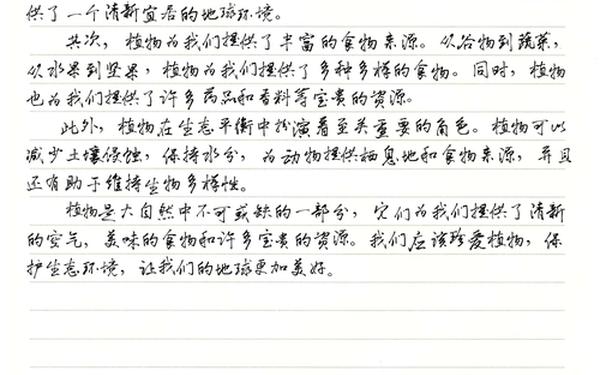 供了一个清新宜居的地球环境。
其次，植物为我们提供了丰富的食物来源。从谷物到蔬菜，
从水果到坚果，植物为我们提供了多种多样的食物。同时，植物
也为我们提供了许多药品和香料等宝贵的资源。
此外，植物在生态平衡中扮演着至关重要的角色。植物可以
减少土壤侵蚀，保持水分，为动物提供栖息地和食物来源，并且
还有助于维持生物多样性。
植物是大自然中不可或缺的一部分，它们为我们提供了清新
的空气，美味的食物和许多宝贵的资源。我们应该珍爱植物，保
护生态环境，让我们的地球更加美好。